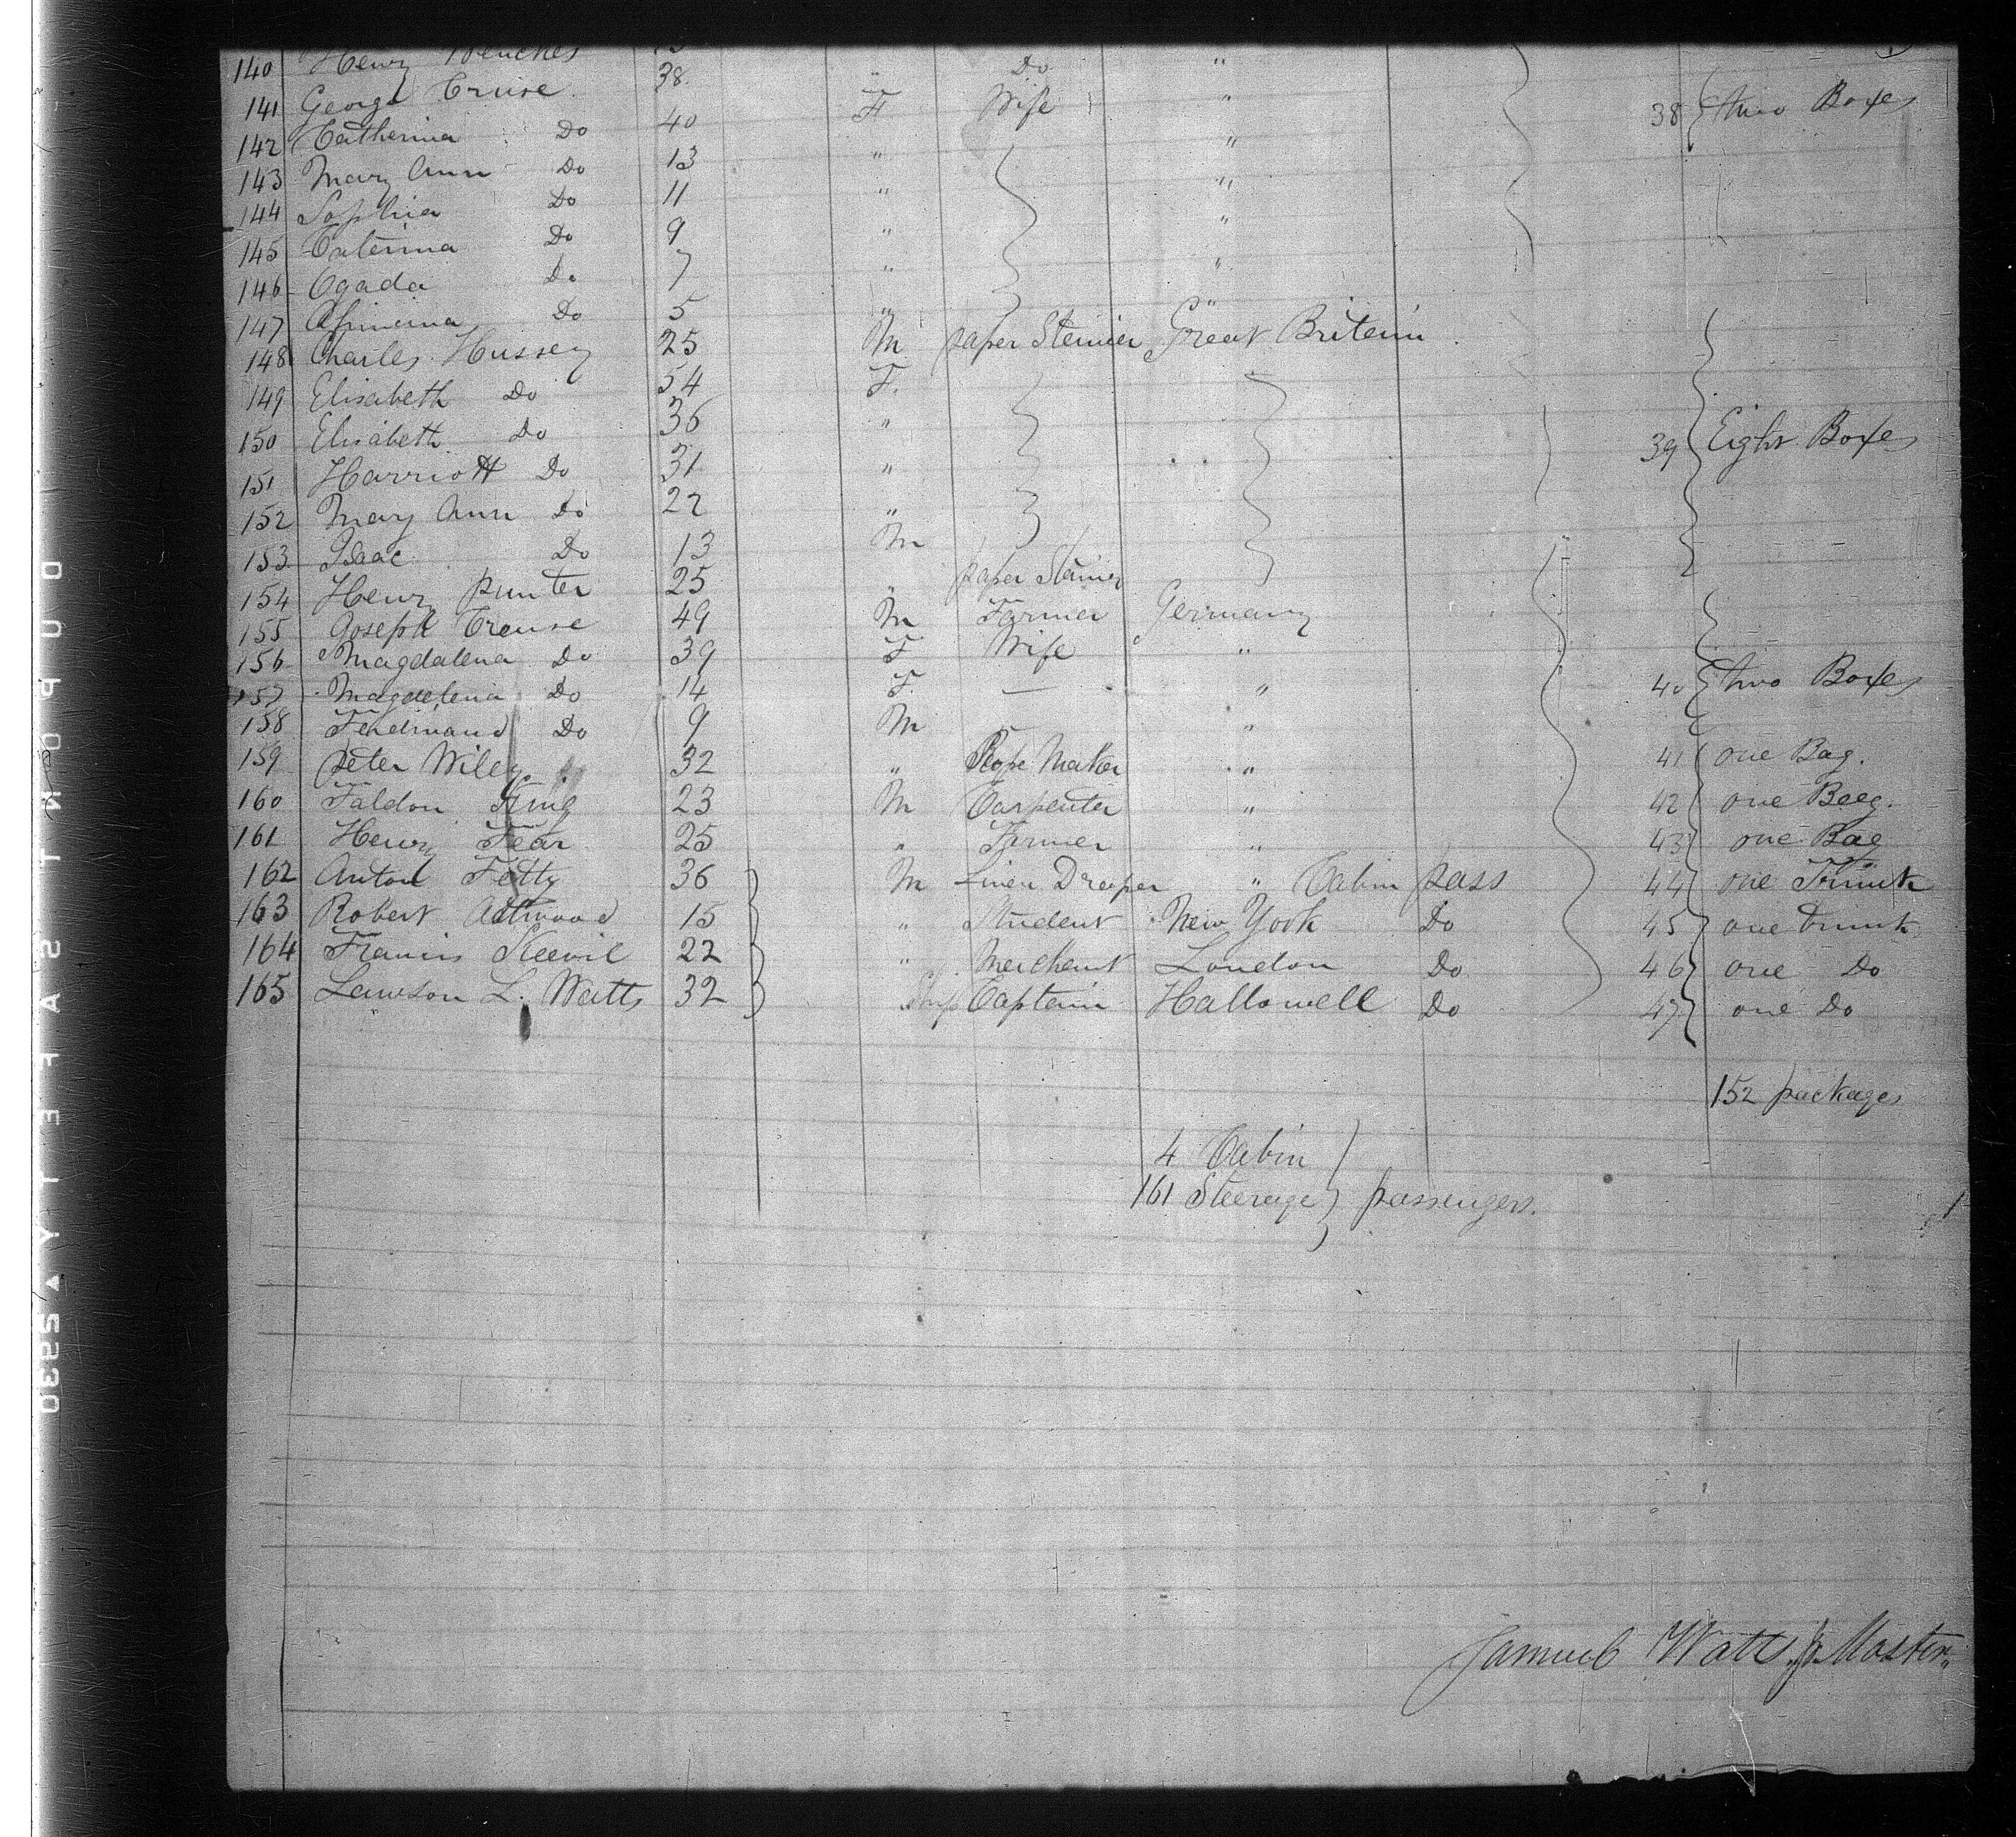 140 Henry
141 George Cruise 38 " Do "
142 Catherina Do 40 F Wife " 38 two Boxes
143 Mary Ann Do 13 " "
144 Sophia Do 11 " "
145 Caterina Do 9 " "
146 Agada Do 7 " "
147 Do 5 " "
148 Charles Hussey 25 M paper Steiner Great Britain
149 Elisabeth Do 54 F.
150 Elisabeth Do 36 " 39 Eight Boxes
151 Harriott Do 31 "
152 Mary Ann Do 22 "
153 Isaac Do 13 M
154 Henry punter 25 " paper Stainer
155 Joseph Creuse 49 M Farmer Germany
156 Magdalena Do 39 F Wife "
157 Magdelena Do 14 F. — " 40 two Boxes
158 Ferdinand Do 9 M "
159 peter Wiley 32 " Rope Maker " 41 one Bag.
160 Faldon King 23 M Carpenter " 42 one Baeg.
161 Henry Fear 25 " Farmer " 43 one Bag
162 Anton Fetty 36 M Linen Draper " Cabin pass 44 one Trunk
163 Robert Attwood 15 " Student New York Do 45 one trunk
164 Francis Keevil 22 " Merchant London Do 46 one Do
165 Lawson L. Watts 32 Ship Captain Hallowell Do 47 one Do
152 packages
4 Cabin
161 Steerage passengers.
Samuel Watts Jr Master